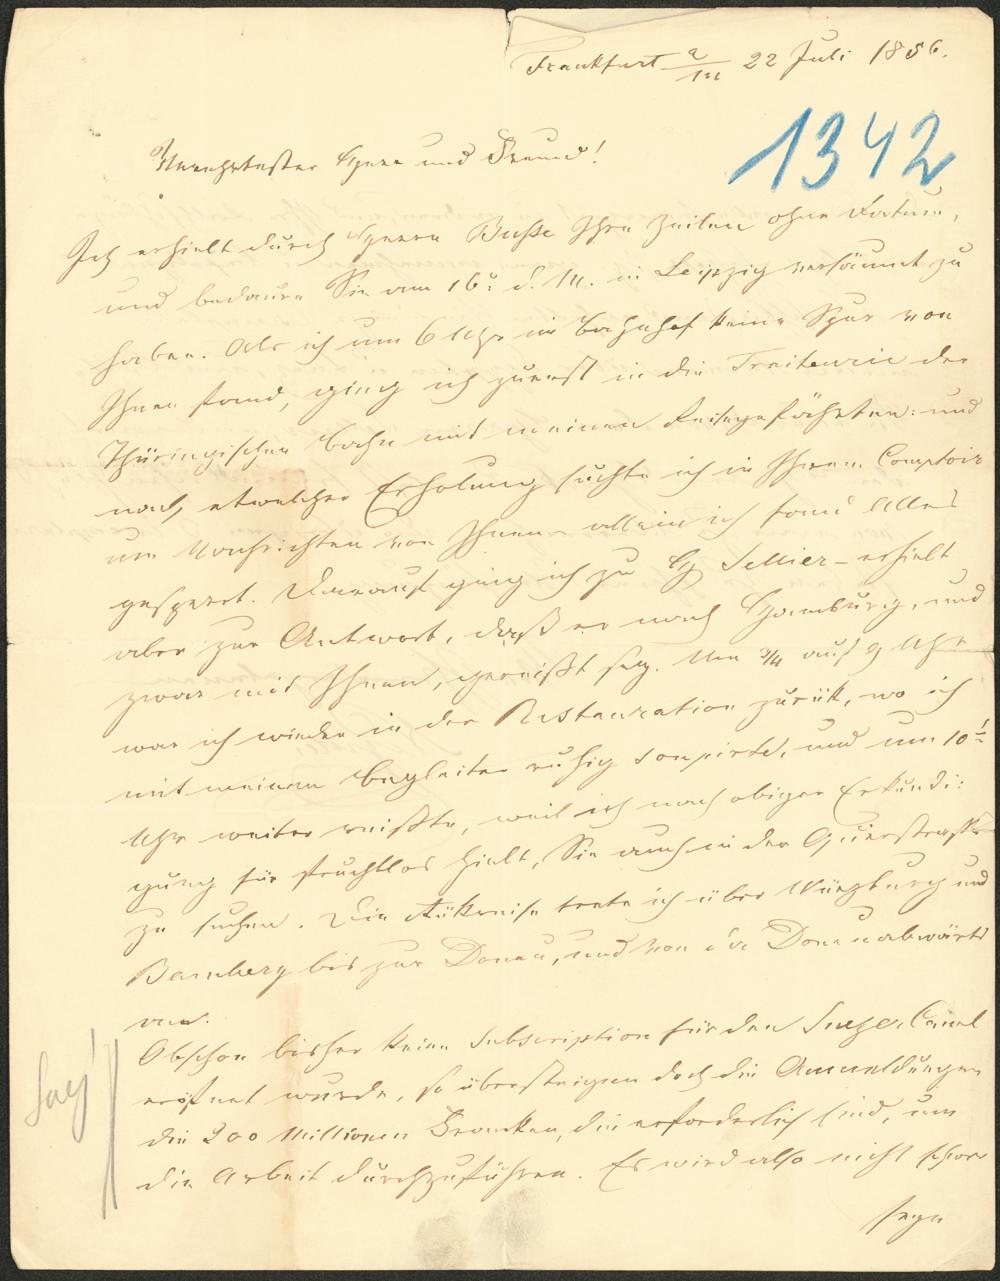 Frankfurt a/M 22 Juli 1856.
1342
Verehrtester Herr und Freund!
Ich erhielt durch Herrn Buße Ihre Zeilen ohne Datum,
und bedaure Sie am 16: d. M. in Leipzig versäumt zu
haben. Als ich um 6 Uhr im Bahnhof keine Spur von
Ihnen fand, ging ich zuerst in die Traiteurie der
Thüringischen Bahn mit meinen Reisegefährten: und
nach etwelcher Erholung suchte ich in Ihrem Comptoir
um Nachrichten von Ihnen – allein ich fand Alles
gesperrt. Darauf ging ich zu H Sellier – erhielt
aber zur Antwort, daß er nach Hamburg, und
zwar mit Ihnen, gereißt sey. Um 3/4 auf 9 Uhr
war ich wieder in der Restauration zurük, wo ich
mit meinem Begleiter ruhig soupirte, und um 10 1/2
Uhr weiter reißte, weil ich nach obiger Erkundi:
gung für fruchtlos hielt, Sie auch in der Querstraße
zu suchen. Die Rükreise trete ich über Würzburg und
Bamberg bis zur Donau, und von da Donauabwärts
an.
Obschon bisher keine Subscription für den Suez Canal
eröffnet wurde, so übersteigen doch die Anmeldungen
die 200 Millionen Franken, die erforderlich sind, um
die Arbeit durchzuführen. Es wird also nicht schwer
seyn